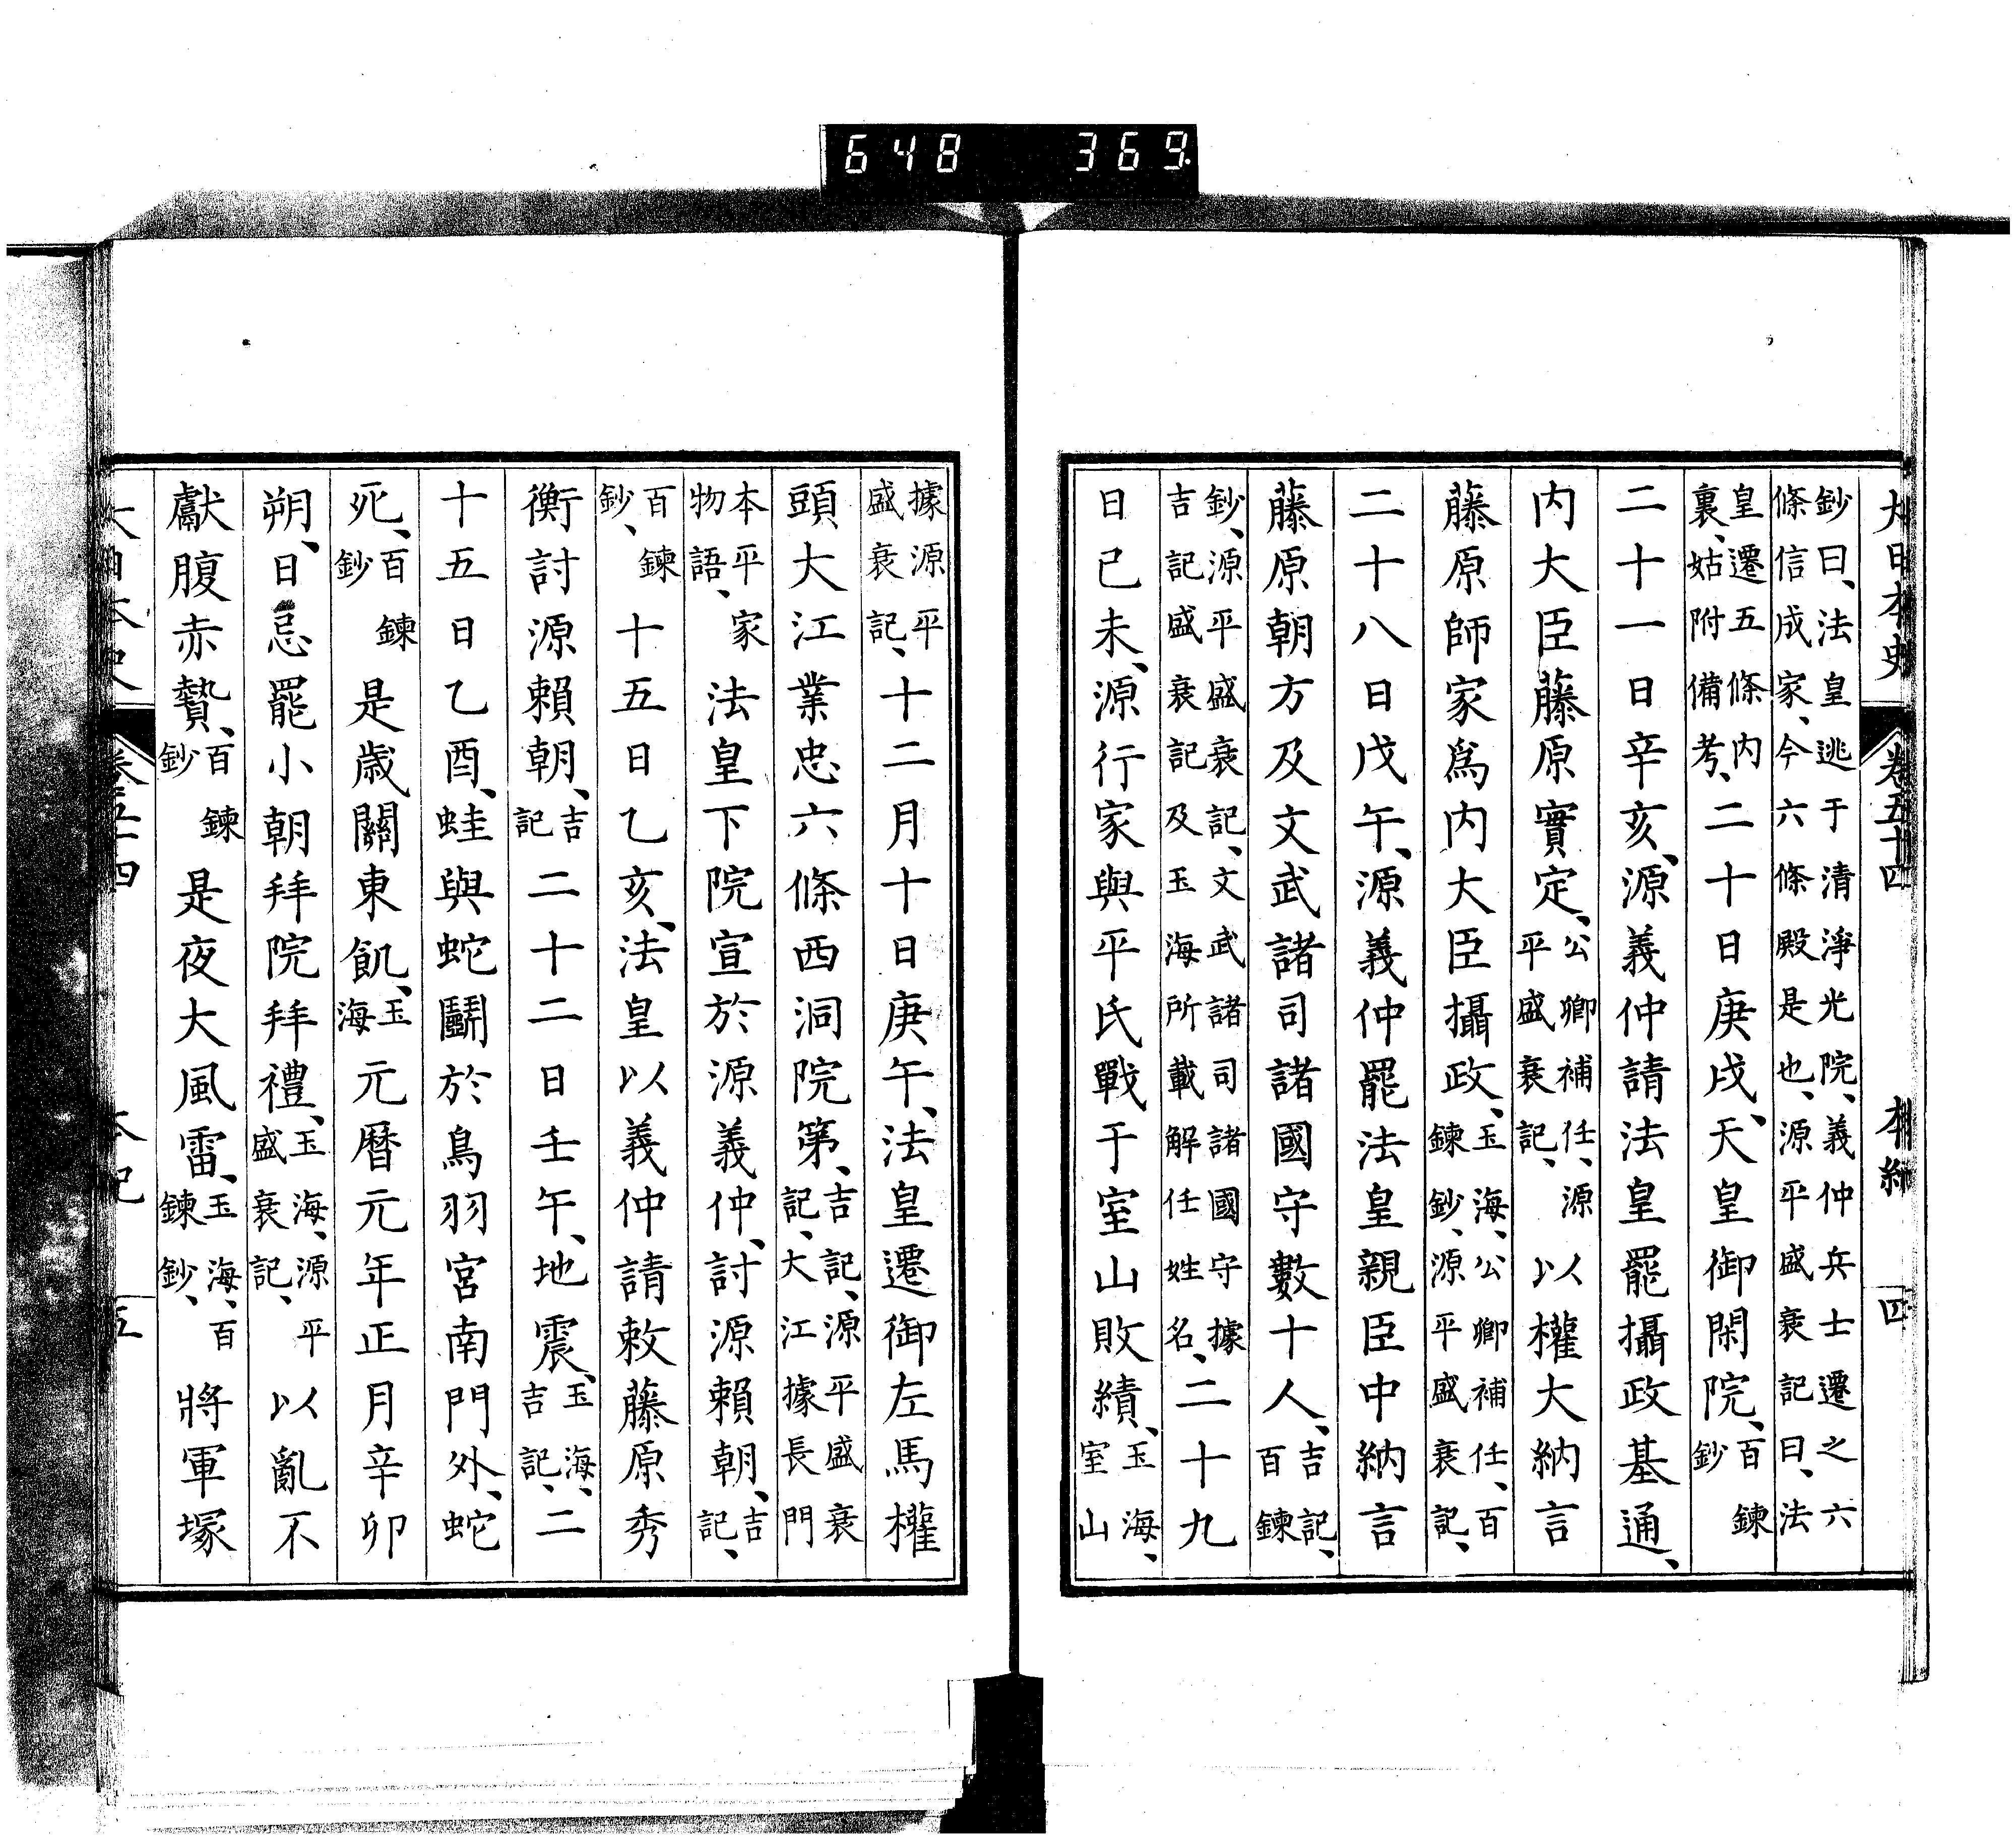 大日本史 卷五十四 本紀 四
鈔曰、法皇逃于清淨光院、義仲兵士遷之六
條信成家、今六條殿是也、源平盛衰記曰、法
皇遷五條内裏、姑附備考、二十日庚戌、天皇御閑院、百鍊鈔
二十一日辛亥、源義仲請法皇罷攝政基通、
内大臣藤原實定、公卿補任、源平盛衰記、以權大納言
藤原師家爲内大臣攝政、玉海、公卿補任、百鍊鈔、源平盛衰記、
二十八日戊午、源義仲罷法皇親臣中納言
藤原朝方及文武諸司諸國守數十人、吉記、百鍊
鈔、源平盛衰記、文武諸司諸國守據吉記盛衰記及玉海所載解任姓名、二十九
日己未、源行家與平氏戰于室山敗績、玉海、室山
據源平盛衰記、十二月十日庚午、法皇遷御左馬權
頭大江業忠六條西洞院第、吉記、源平盛衰記、大江據長門
本平家物語、法皇下院宣於源義仲、討源賴朝、吉記、
百鍊鈔、十五日乙亥、法皇以義仲請敕藤原秀
衡討源賴朝、吉記二十二日壬午、地震、玉海、吉記、二
十五日乙酉、蛙與蛇鬭於鳥羽宮南門外、蛇
死、百鍊鈔是歲關東飢、玉海元曆元年正月辛卯
朔、日忌罷小朝拜院拜禮、玉海、源平盛衰記、以亂不
獻腹赤贄、百鍊鈔是夜大風雷、玉海、百鍊鈔、將軍塚
大日本史 卷五十四 本紀 五
648 369.